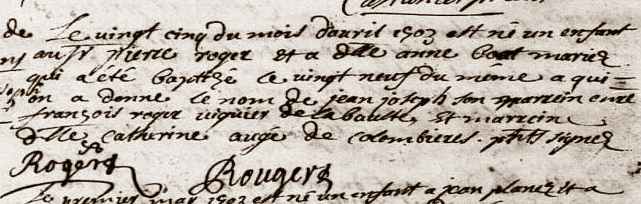 Le vingt cinq du mois d'avril 1702 est né un enfant
au sr pierre roger et a dlle anne boat mariez
qui a eté baptizé le vingt neuf du meme a qui
on a donne le nom de jean joseph son parrein
françois roger viguier de la bastle et marreine
dlle catherine augé de colombieres. signez
Roger Rouger
Le premier may 1702 est né un enfant a jean planez et a